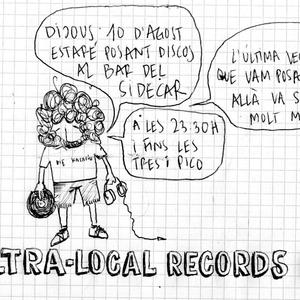 DIJOUS 10 D'AGOST
ESTARÉ POSANT DISCOS
AL BAR DEL
SIDECAR
L'ÚLTIMA
QUE VAM POSA
ALLÀ VA S
MOLT M
A LES 23:30H
I FINS LES
TRES I PICO
LTRA-LOCAL RECORDS